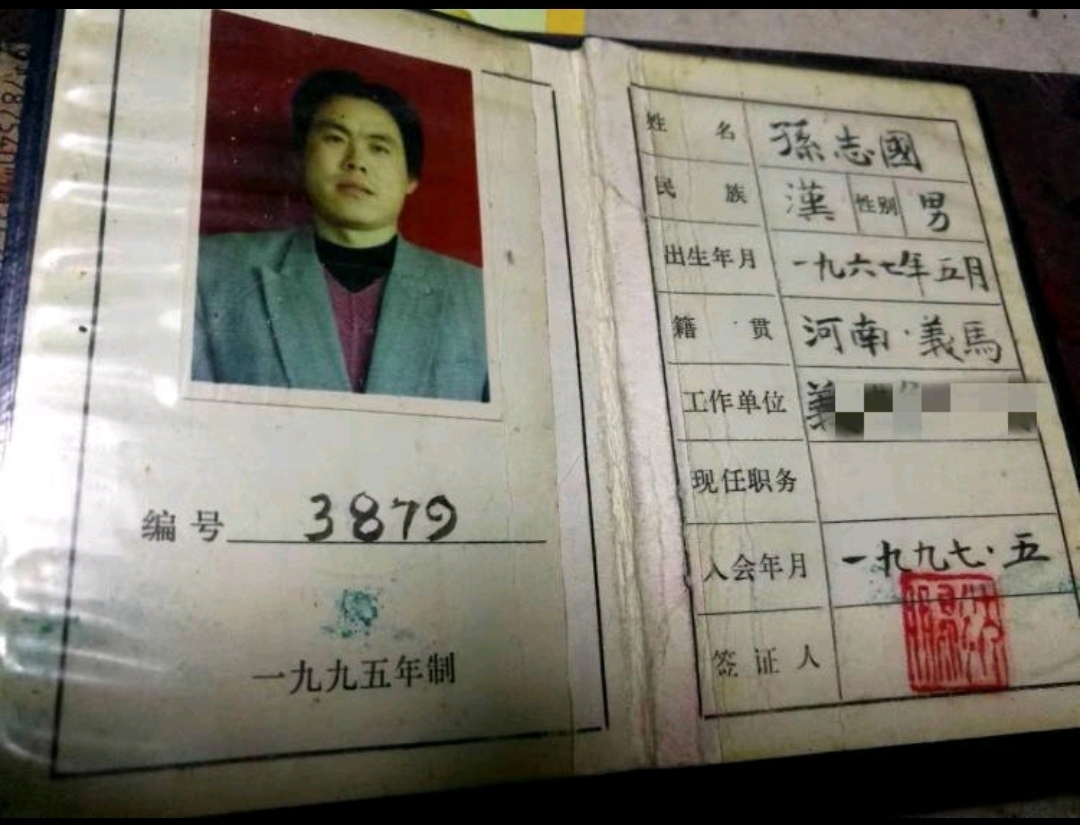 编号 3879
一九九五年制
姓名 孫志國
民族 漢 性别 男
出生年月 一九六七年五月
籍贯 河南·義馬
工作单位 義
现任职务
入会年月 一九九七·五
签证人